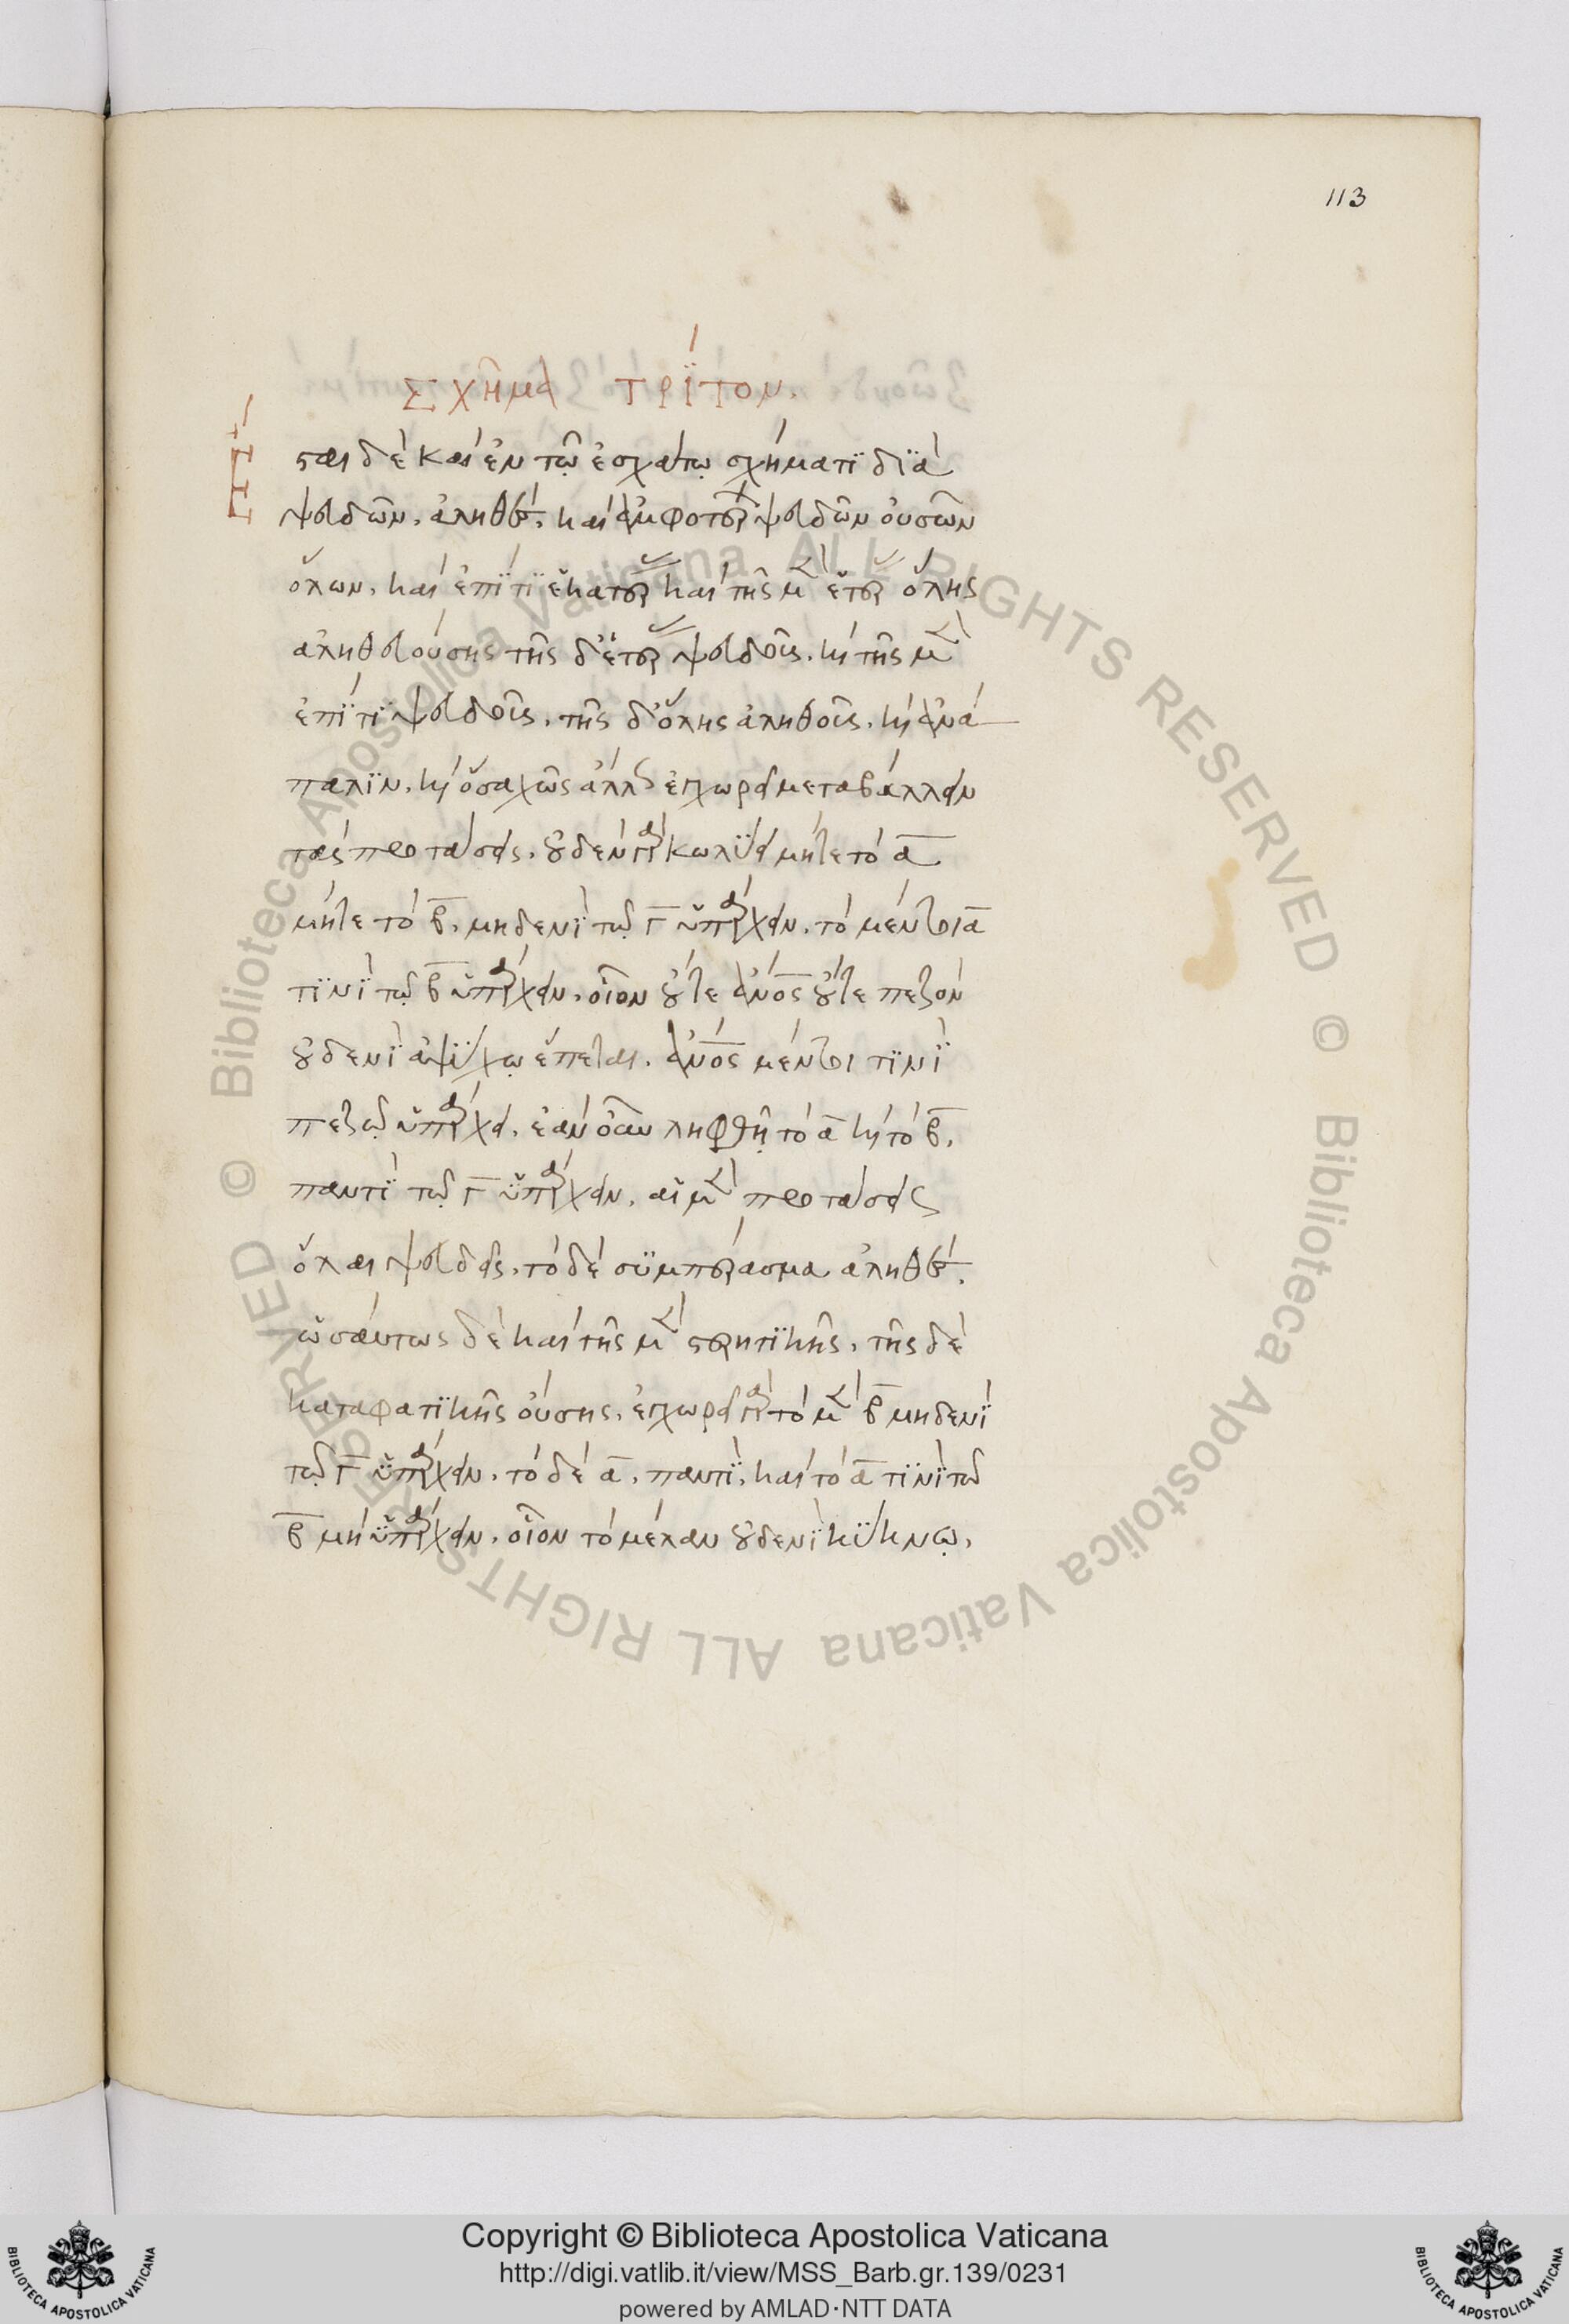 113
Σχῆμα τρίτον.
Ἔσται δὲ καὶ ἐν τῷ ἐσχάτῳ σχήματι διὰ
ψευδῶν, ἀληθές, καὶ ἀμφοτέρων ψευδῶν οὐσῶν
ὅλων, καὶ ἐπί τι ἑκατέρας καὶ τῆς μὲν ἑτέρας ὅλης
ἀληθοῦς οὔσης τῆς δ' ἑτέρας ψευδοῦς. καὶ τῆς μὲν
ἐπί τι ψευδοῦς, τῆς δ' ὅλης ἀληθοῦς. καὶ ἀνά
παλιν. καὶ ὁσαχῶς ἄλλως ἐγχωρεῖ μεταβάλλειν
τὰς προτάσεις. οὐδὲν γὰρ κωλύει μήτε τὸ α
μήτε τὸ β, μηδενὶ τῷ γ ὑπάρχειν, τὸ μέντοι α
τινὶ τῷ β ὑπάρχειν. οἷον οὔτε ἄνος οὔτε πεζὸν
οὐδενὶ ἀψύχῳ ἕπεται. ἄνος μέντοι τινὶ
πεζῷ ὑπάρχει. ἐὰν οὖν ληφθῇ τὸ α καὶ τὸ β,
παντὶ τῷ γ ὑπάρχειν, αἱ μὲν προτάσεις
ὅλαι ψευδεῖς, τὸ δὲ συμπέρασμα ἀληθές.
ὡσαύτως δὲ καὶ τῆς μὲν στερητικῆς, τῆς δὲ
καταφατικῆς οὔσης. ἐγχωρεῖ γὰρ τὸ μὲν β μηδενὶ
τῷ γ ὑπάρχειν, τὸ δὲ α, παντί, καὶ τὸ α τινὶ τῷ
β μὴ ὑπάρχειν. οἷον τὸ μέλαν οὐδενὶ κύκνῳ,
Biblioteca Apostolica Vaticana ALL RIGHTS RESERVED © Biblioteca Apostolica Vaticana ALL RIGHTS RESERVED ©
Copyright © Biblioteca Apostolica Vaticana
http://digi.vatlib.it/view/MSS_Barb.gr.139/0231
powered by AMLAD·NTT DATA
BIBLIOTECA APOSTOLICA VATICANA
BIBLIOTECA APOSTOLICA VATICANA